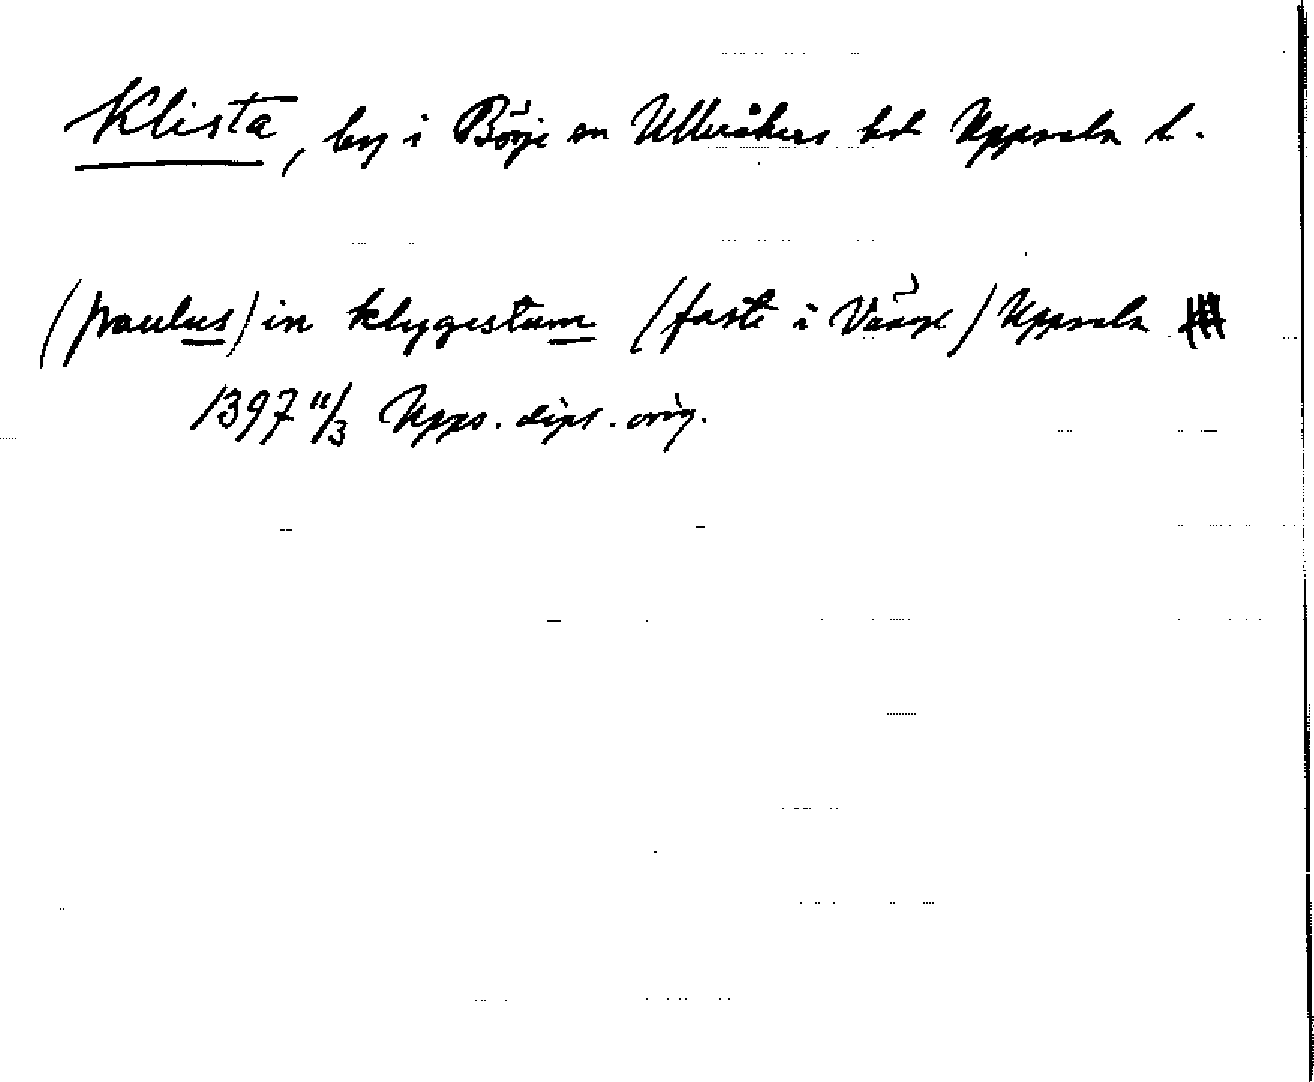 Klista, by i Börje sn Ulleråkers hd Uppsala l.
(paulus) in klyggestum (faste i Vänge) Uppsala
1397 11/3 Upps. dipl. orig.